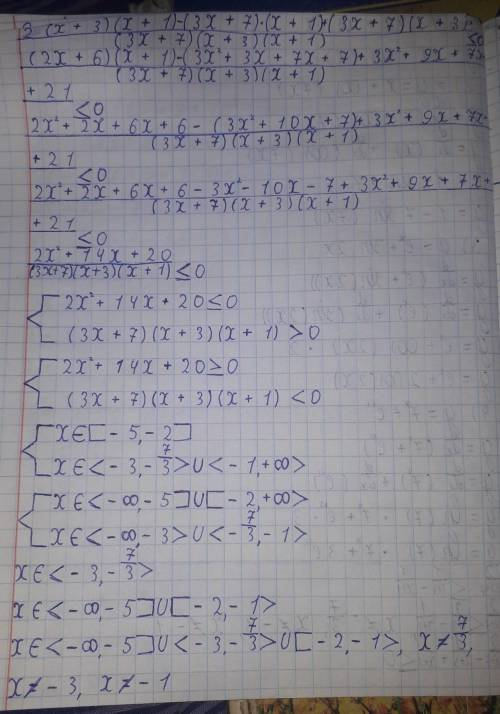 2 (x + 3)(x + 1)-(3x + 7)·(x + 1)+(3x + 7)(x + 3)
(3x + 7)(x + 3)(x + 1) ≤0
(2x + 6)(x + 1)-(3x² + 3x + 7x + 7)+ 3x² + 9x + 7x
(3x + 7)(x + 3)(x + 1)
+ 21
≤0
2x² + 2x + 6x + 6 - (3x² + 10x + 7)+ 3x² + 9x + 7x+
(3x + 7)(x + 3)(x + 1)
+ 21
≤0
2x² + 2x + 6x + 6 - 3x² - 10x - 7 + 3x² + 9x + 7x +
(3x + 7)(x + 3)(x + 1)
+ 21
≤0
2x² + 14x + 20
(3x+7)(x+3)(x + 1) ≤0
2x² + 14x + 20 ≤0
(3x + 7)(x + 3)(x + 1) >0
2x² + 14x + 20 ≥0
(3x + 7)(x + 3)(x + 1) <0
x∈[- 5, - 2]
x∈<- 3, - 7/3>∪<- 1, +∞>
x∈<- ∞, - 5]∪[- 2, +∞>
x∈<- ∞, - 3>∪<- 7/3, - 1>
x∈<- 3, - 7/3>
x∈<- ∞, - 5]∪[- 2, - 1>
x∈<- ∞, - 5]∪<- 3, - 7/3>∪[- 2, - 1>, x≠ 7/3,
x≠ - 3, x≠ - 1